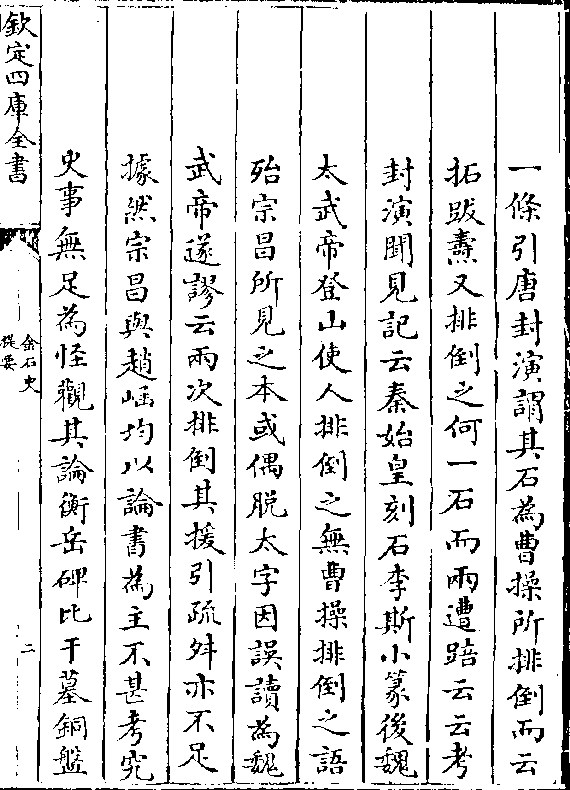 一條引唐封演謂其石為曹操所排倒而云
拓跋燾又排倒之何一石而兩遭踣云云考
封演聞見記云秦始皇刻石李斯小篆後魏
太武帝登山使人排倒之無曹操排倒之語
殆宗昌所見之本或偶脫太字因誤讀為魏
武帝遂謬云兩次排倒其援引疏舛亦不足
據然宗昌與趙崡均以論書為主不甚考究
史事無足為怪觀其論衡岳碑比干墓銅盤
欽定四庫全書
金石史
提要
二